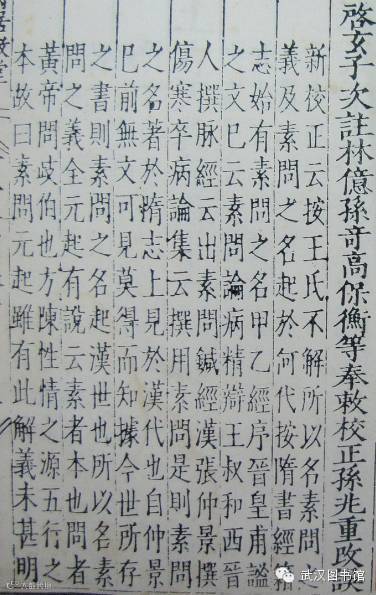 啓玄子次註林億孫奇高保衡等奉敕校正孫兆重改誤
新校正云按王氏不解所以名素問
義及素問之名起於何代按隋書經籍
志始有素問之名甲乙經序晉皇甫謐
之文已云素問論病精辯王叔和西晉
人撰脉經云出素問鍼經漢張仲景撰
傷寒卒病論集云撰用素問是則素問
之名著於隋志上見於漢代也自仲景
已前無文可見莫得而知據今世所存
之書則素問之名起漢世也所以名素
問之義全元起有說云素者本也問者
黃帝問歧伯也方陳性情之源五行之
本故曰素問元起雖有此解義未甚明
武汉图书馆